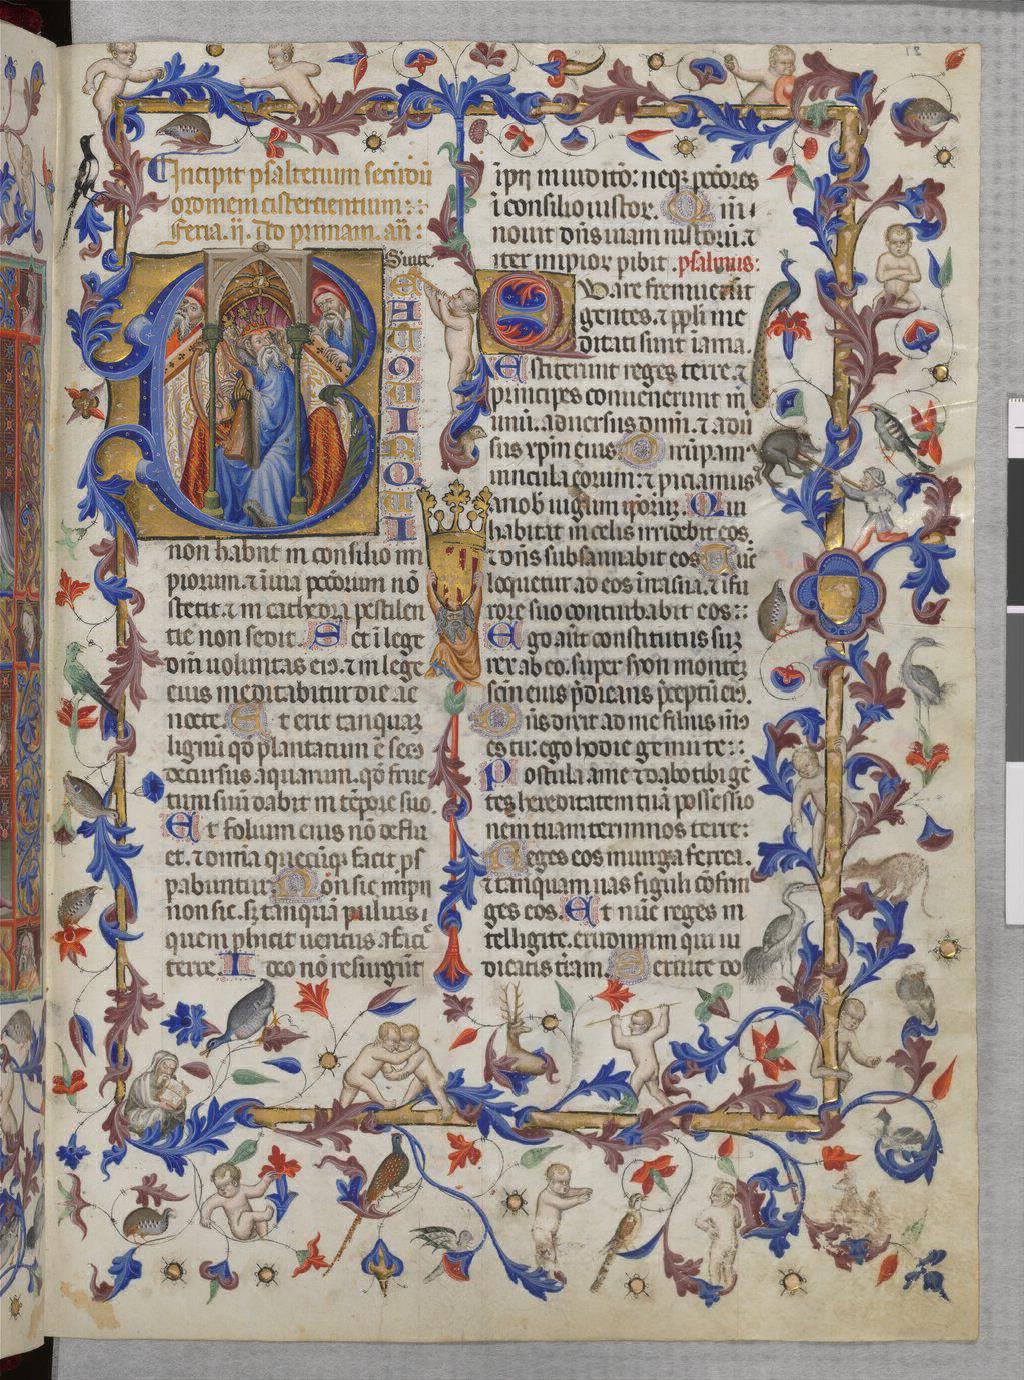 Incipit psalterium secūdū
ordinem cisterciensium:
Feria .ii. ad primam. añ:
Seruite.
BEATUS
UIR QUI
non habiit in consilio im
piorum. ⁊ ī uia pctōrum nō
stetit. ⁊ in cathedra pestilen
tie non sedit. Set ī lege
dn̄i uoluntas eiꝰ. ⁊ in lege
eius meditabitur die ac
nocte. Et erit tanquaʒ
lignū qd̄ plantatum ē secꝰ
decursus aquarum. qd̄ fruc
tum suū dabit in tēpore suo.
Et folium eius nō deflu
et. ⁊ omīa quecūqʒ faciet ꝓs
pabuntur. Non sic impii
non sic. sʒ tanquā puluis
quem ꝓhicit uentus a facie
terre. Ideo nō resurgūt
ipĩi in iudicio: neqʒ pctōres
ī consilio iustoʀ. Qm̄
nouit dn̄s uiam iustoꝝ. ⁊
iter impioꝝ ꝑibit. psalmus:
Quare fremuerūt
gentes. ⁊ ppl̄i me
ditati sunt inania.
Astiterunt reges terre ⁊
principes conuenerunt in
unū. aduersus dn̄m. ⁊ adū
sus xp̄m eius. Dirūpamꝰ
uincula eorum: ⁊ ꝓiciamus
a nob̄ iugum ip̄oꝝ. Qui
habitat in celis irridebit eos.
⁊ dn̄s subsannabit eos. Tūc
loquetur ad eos ī ira sua. ⁊ ī fu
rore suo conturbabit eos::
Ego aūt constitutus suʒ
rex ab eo. super syon monteʒ
scm̄ eius p̄dicans p̄ceptū eiꝰ.
Dn̄s dixit ad me filius mꝰ
es tu: ego hodie genui te::
Postula a me ⁊ dabo tibi gē
tes hereditatem tuā possessio
nem tuam terminos terre:
Reges eos in uirga ferrea.
⁊ tanquam uas figuli cōfrin
ges eos. Et nūc reges in
telligite. erudimini qui iu
dicatis tr̄am. Seruite do